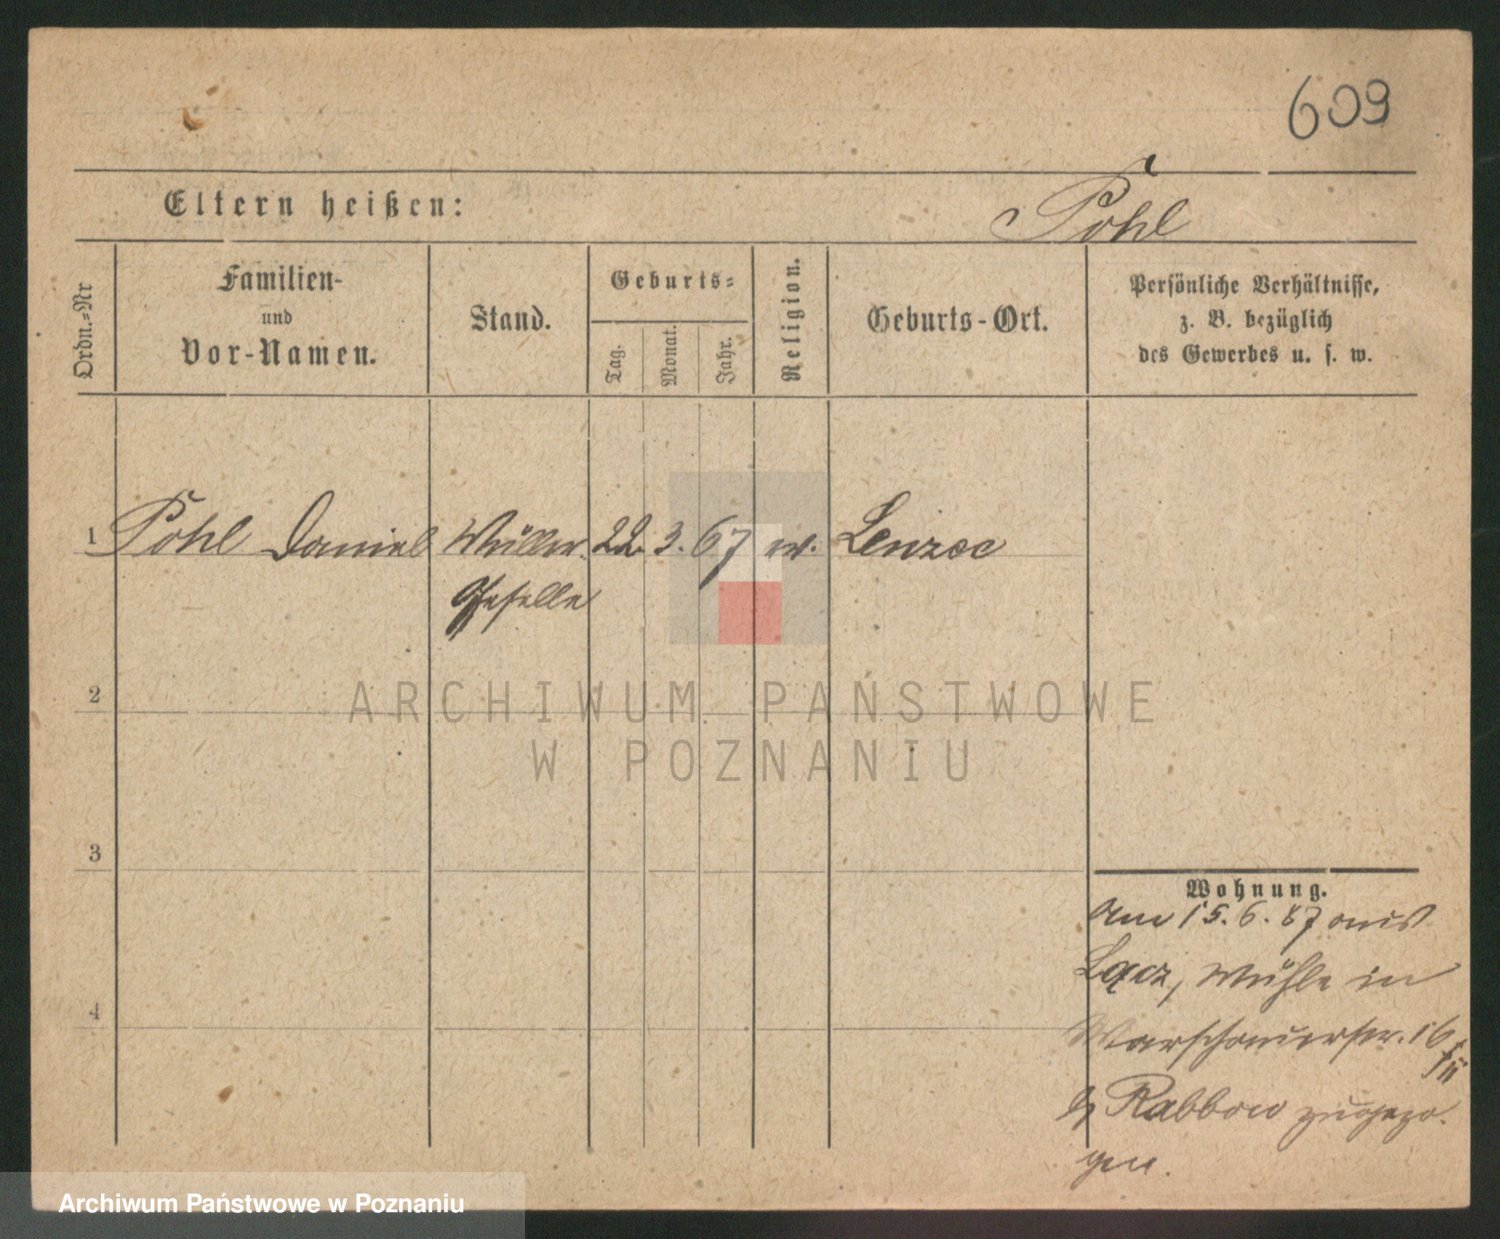 609
Eltern heißen:
Pohl
Ordn.-Nr
Familien-
und
Vor-Namen.
Stand.
Geburts-
Tag.
Monat.
Jahr.
Religion.
Geburts-Ort.
Persönliche Verhältnisse,
z. B. bezüglich
des Gewerbes u. s. w.
1 Pohl Daniel Müller 22. 3. 67 Lenzec
Geselle
2
ARCHIWUM PAŃSTWOWE
W POZNANIU
3
Wohnung.
Am 15. 6. 87 aus
Łącz, Mühle in
Warschauerstr. 16
b Rabbow zugezo-
gen.
4
Archiwum Państwowe w Poznaniu